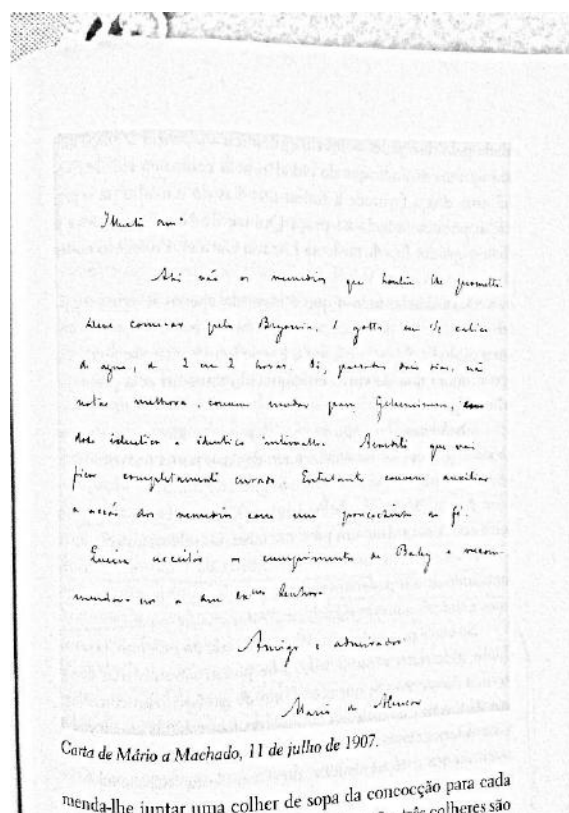 Illustre am.º
Ahi vão os remedios que hontem lhe prometti.
Deve começar pela Bryonia, 1 gotta em ½ calice
de agua, de 2 em 2 horas. Si, passados dois dias, não
notar melhora, convem mudar para Gelsemium,
dose identica e identico intervallo. Acredito que vai
ficar completamente curado. Entretanto convem auxiliar
a acção dos remedios com uma fé.
Queira acceitar os cumprimentos de Baby e recom-
mendar-nos a sua exma Senhora
Amigo e admirador
Mario de Alencar
Carta de Mário a Machado, 11 de julho de 1907.
menda-lhe juntar uma colher de sopa da concocção para cada
três colheres são